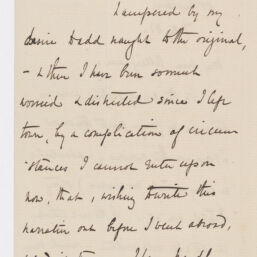 hampered by my
desire to add naught to the original,
- & then I have been so much
worried & distracted since I left
town, by a complication of circum
-stances I cannot enter upon
now, that, wishing to write this
narrative out before I went abroad,